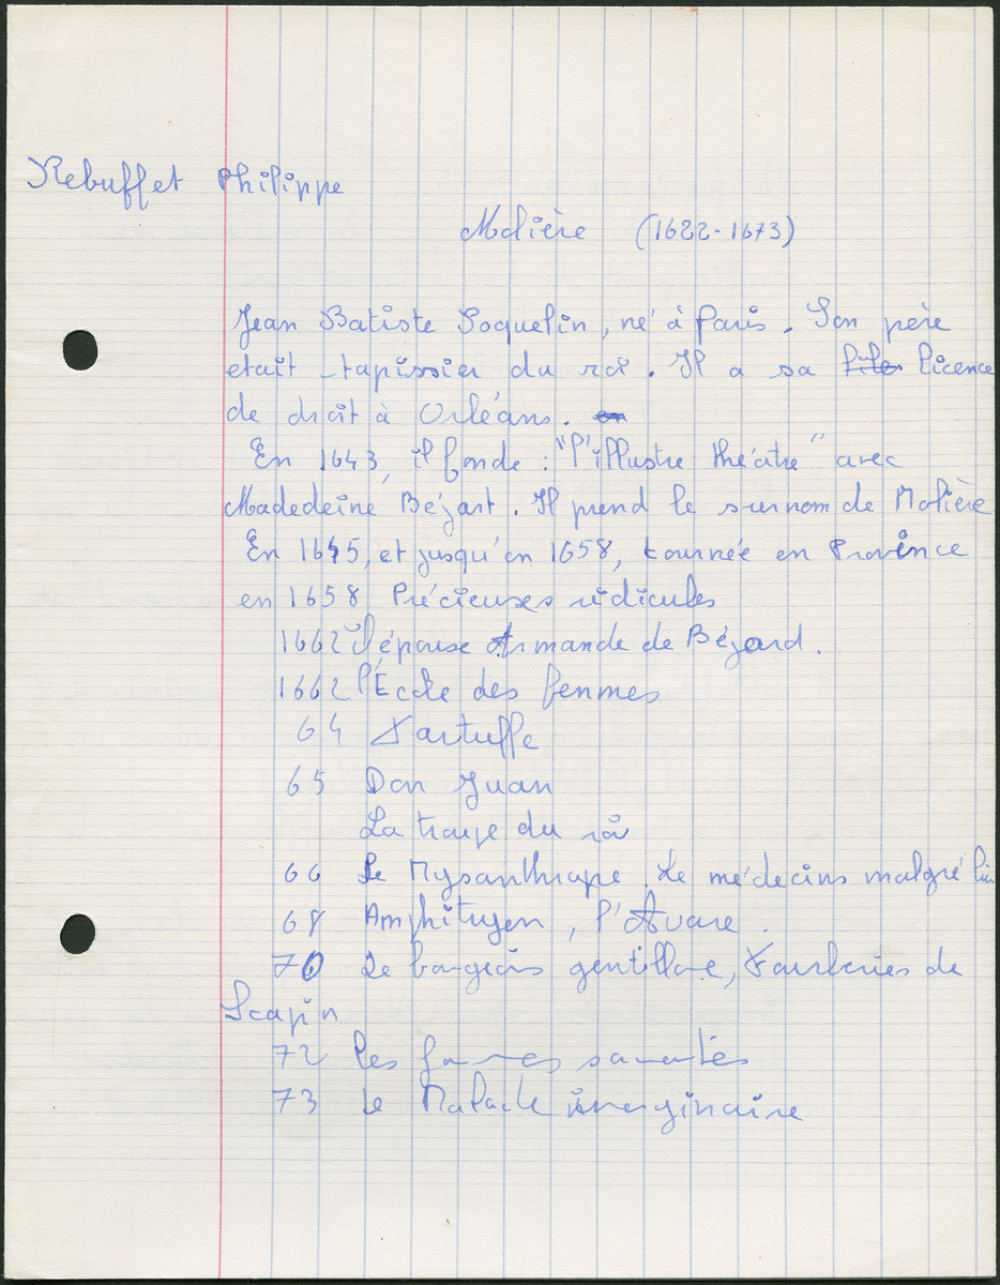 Rebuffet Philippe
Molière (1622-1673)
Jean Batiste Poquelin, né à Paris. Son père
etait tapissier du roi. Il a sa licence
de droit à Orléans.
En 1643, il fonde : "l'illustre théatre" avec
Madedeine Béjart. Il prend le surnom de Molière
En 1645, et jusqu'en 1658, tournée en Province
en 1658 Précieuses ridicules
1662 Il épouse Armande de Béjard.
1662 l'École des femmes
64 Tartuffe
65 Don Juan
La du roi
66 Le Mysanthrope. Le médecins malgré lui
68 Amphitryon, l'Avare.
70 Le bourgeois gentilhome, Fourberies de
Scapin
72 les femmes savantes
73 Le Malade imaginaire